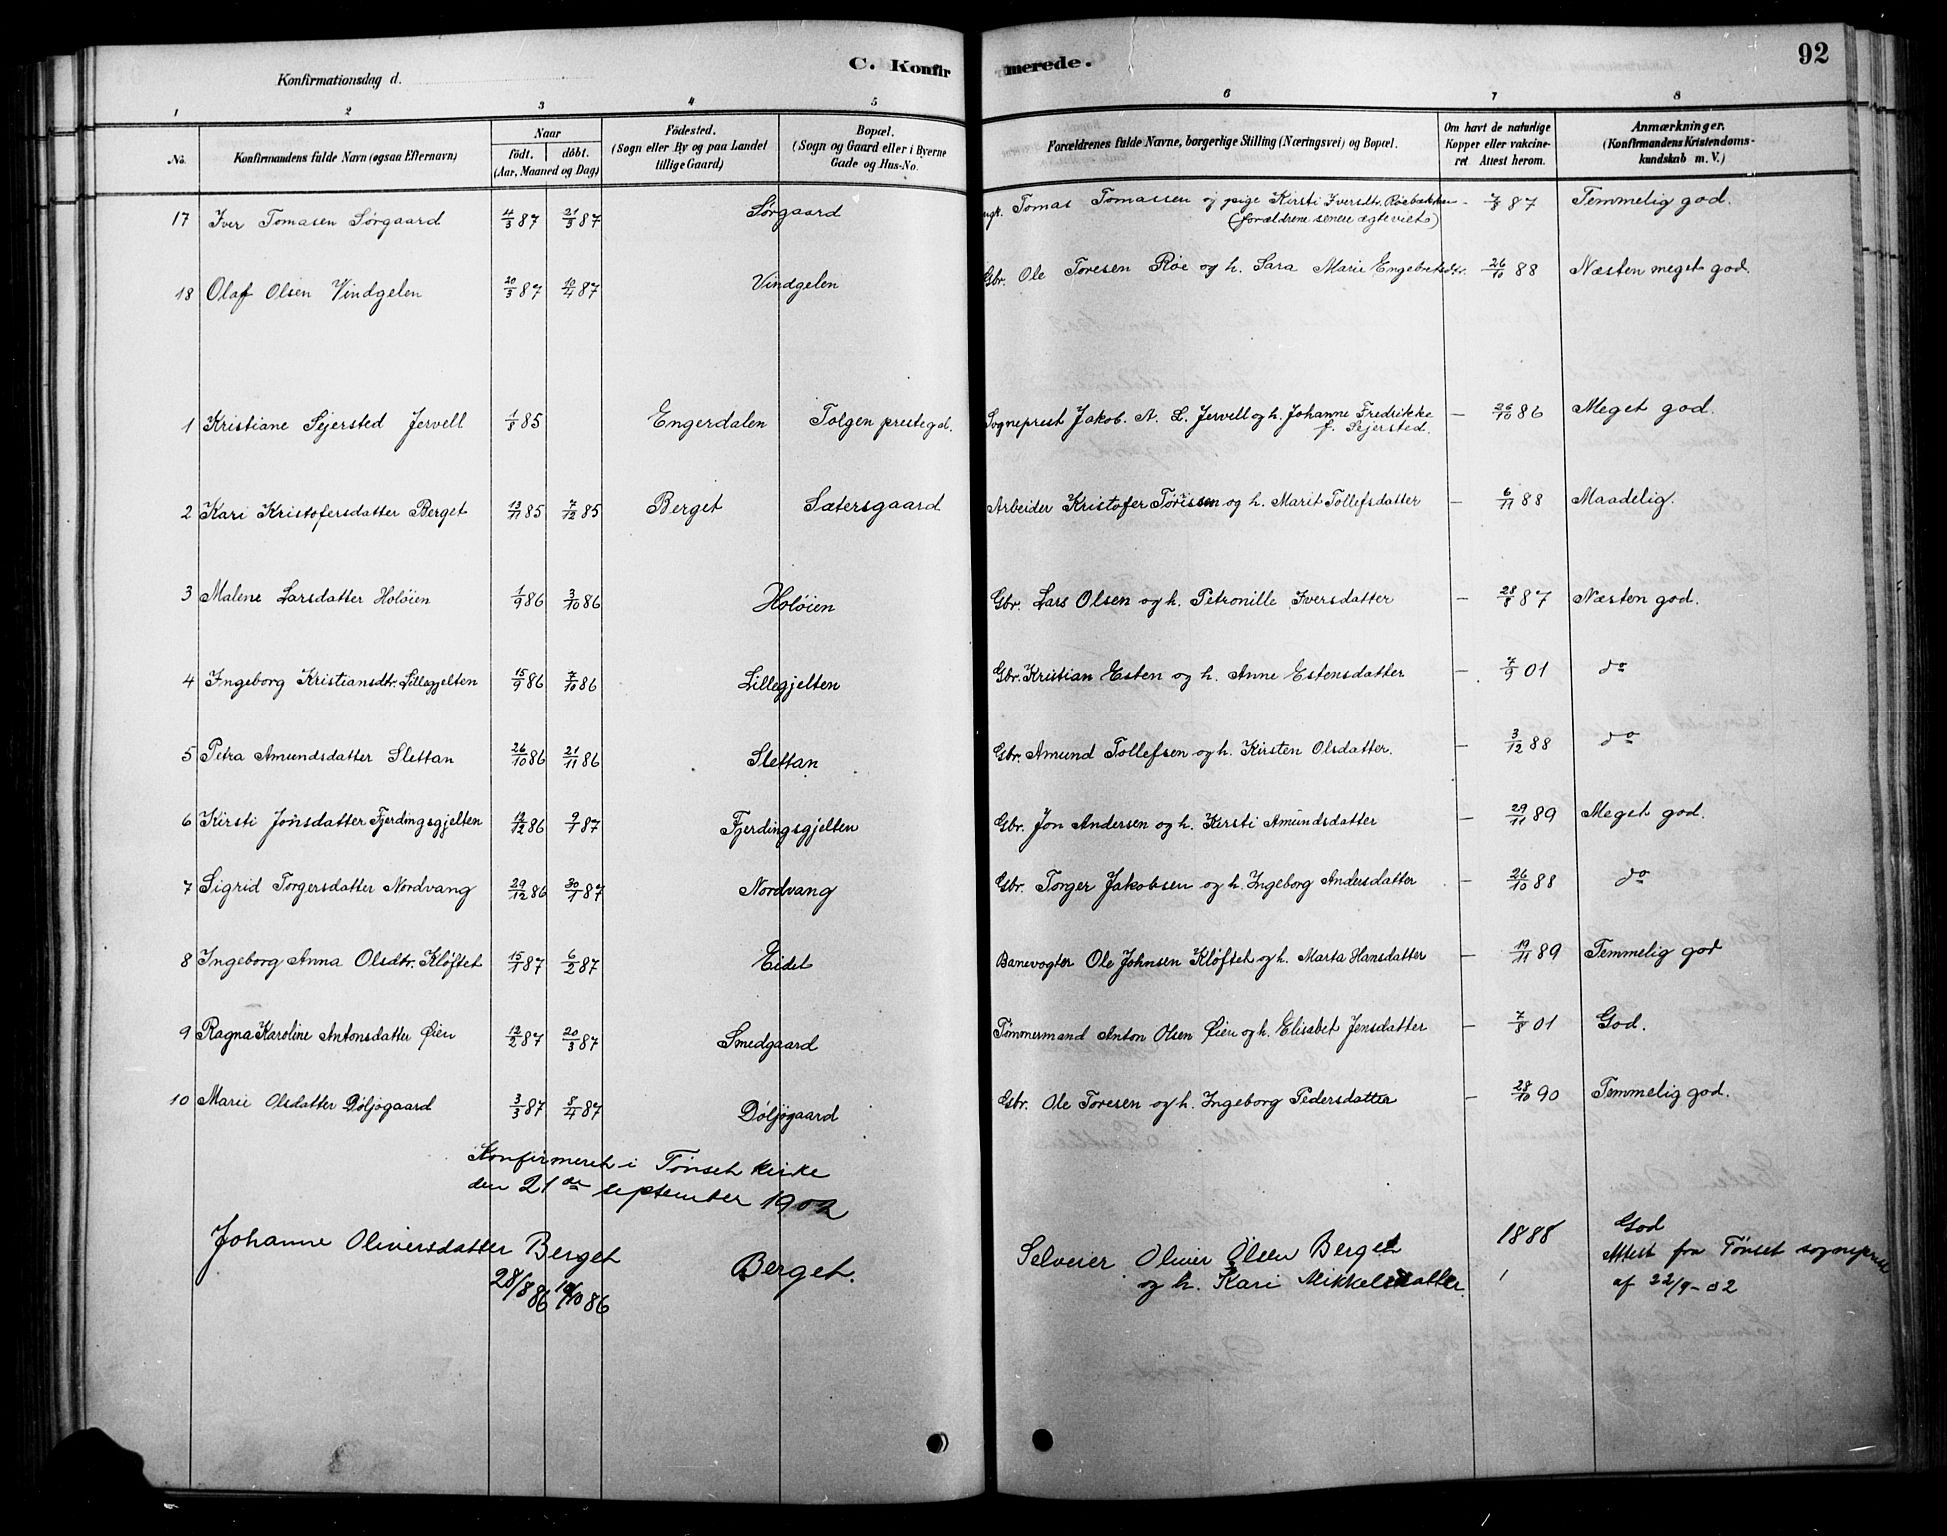 92
C. Konfirmerede.
Konfirmationsdag d.
1 2 3 4 5 6 7 8
No. Konfirmandens fulde Navn (ogsaa Efternavn) Naar födt. döbt. (Aar, Maaned og Dag) Födested. (Sogn eller By og paa Landet tillige Gaard) Bopæl. (Sogn og Gaard eller i Byerne Gade og Hus-No. Forældrenes fulde Navne, borgerlige Stilling (Næringsvei) og Bopæl. Om havt de naturlige Kopper eller vakcineret Attest herom. Anmærkninger. (Konfirmandens Kristendomskundskab m. V.)
17 Iver Tomasen Sørgaard 4/3 87 21/3 87 Sørgaard Ungk. Tomas Tomassen og pige Kirsti Iversdtr. Røebakken - 7/8 87 Temmelig god.
(forældrene senere ægteviet)
18 Olaf Olsen Vindgelen 20/3 87 10/4 87 Vindgelen Gbr. Ole Toresen Røe og h. Sara Marie Engebretsdtr. 26/10 88 Næsten meget god.
1 Kristiane Sejersted Jervell 1/8 85 Engerdalen Tolgen prestegd. Sogneprest Jakob. A. L. Jervell og h. Johanne Fredrikke - 26/10 86 Meget god.
f. Sejersted.
2 Kari Kristofersdatter Berget 13/11 85 7/12 85 Berget Sætersgaard Arbeider Kristofer Tørissen og h. Marit Tollefsdatter - 6/11 88 Maadelig.
3 Malene Larsdatter Holöien 1/9 86 3/10 86 Holöien Gbr. Lars Olsen og h. Petronille Iversdatter - 28/8 87 Næsten god.
4 Ingeborg Kristiansdtr. Lillegjelten 15/9 86 7/10 86 Lillegjelten Gbr. Kristian Esten og h. Anne Estensdatter - 7/9 01 do
5 Petra Amundsdatter Slettan 26/10 86 21/11 86 Slettan Gbr. Amund Tollefsen og h. Kirsten Olsdatter. - 3/12 88 do
6 Kirsti Jonsdatter Fjerdingsgjelten 12/12 86 9/1 87 Fjerdingsgjelten Gbr. Jon Andersen og h. Kirsti Amundsdatter - 29/11 89 Meget god.
7 Sigrid Torgersdatter Nordvang 29/12 86 30/1 87 Nordvang Gbr. Torger Jakobsen og h. Ingeborg Andersdatter - 26/10 88 do
8 Ingeborg Anna Olsdtr. Kløftet 15/1 87 6/2 87 Eidet Banevogter Ole Johnsen Kløftet og h. Marta Hansdatter - 19/11 89 Temmelig god
9 Ragna Karoline Antonsdatter Øien 12/2 87 20/3 87 Smedgaard Tömmermand Anton Olsen Øien og h. Elisabet Jensdatter - 7/8 01 God.
10 Marie Olsdatter Döljögaard 3/3 87 8/4 87 Döljögaard Gbr. Ole Toresen og h. Ingeborg Pedersdatter - 28/10 90 Temmelig god.
Konfirmeret i Tönset kirke
den 21de september 1902
Johanne Oliversdatter Berget Berget. Selveier Oliver Olsen Berget 1888 God
28/8 86 10/10 86 og h. Kari Mikkelsdatter. Attest fra Tönset sogneprest
af 22/9-02